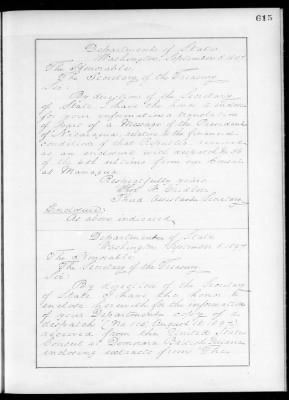 615
Department of State
Washington, September 8, 1897
The Honorable
The Secretary of the Treasury
Sir:
By direction of the Secretary
of State I have the honor to enclose
for your information a translation
of part of a Message of the President
of Nicaragua, relative to the financial
condition of that Republic received
as an enclosure with despatch No.
of the 6th ultimo from our Consul
at Managua.
Respectfully yours,
Thos. W. Cridler
Third Assistant Secretary
Enclosure:
As above indicated.
Department of State
Washington, September 8, 1897
The Honorable
The Secretary of the Treasury
Sir:
By direction of the Secretary
of State I have the honor to
enclose herewith for the information
of your Department a copy of a
despatch (No. 115 August 18, 1897)
received from the United States
Consul at Demerara, British Guiana
enclosing extracts from the